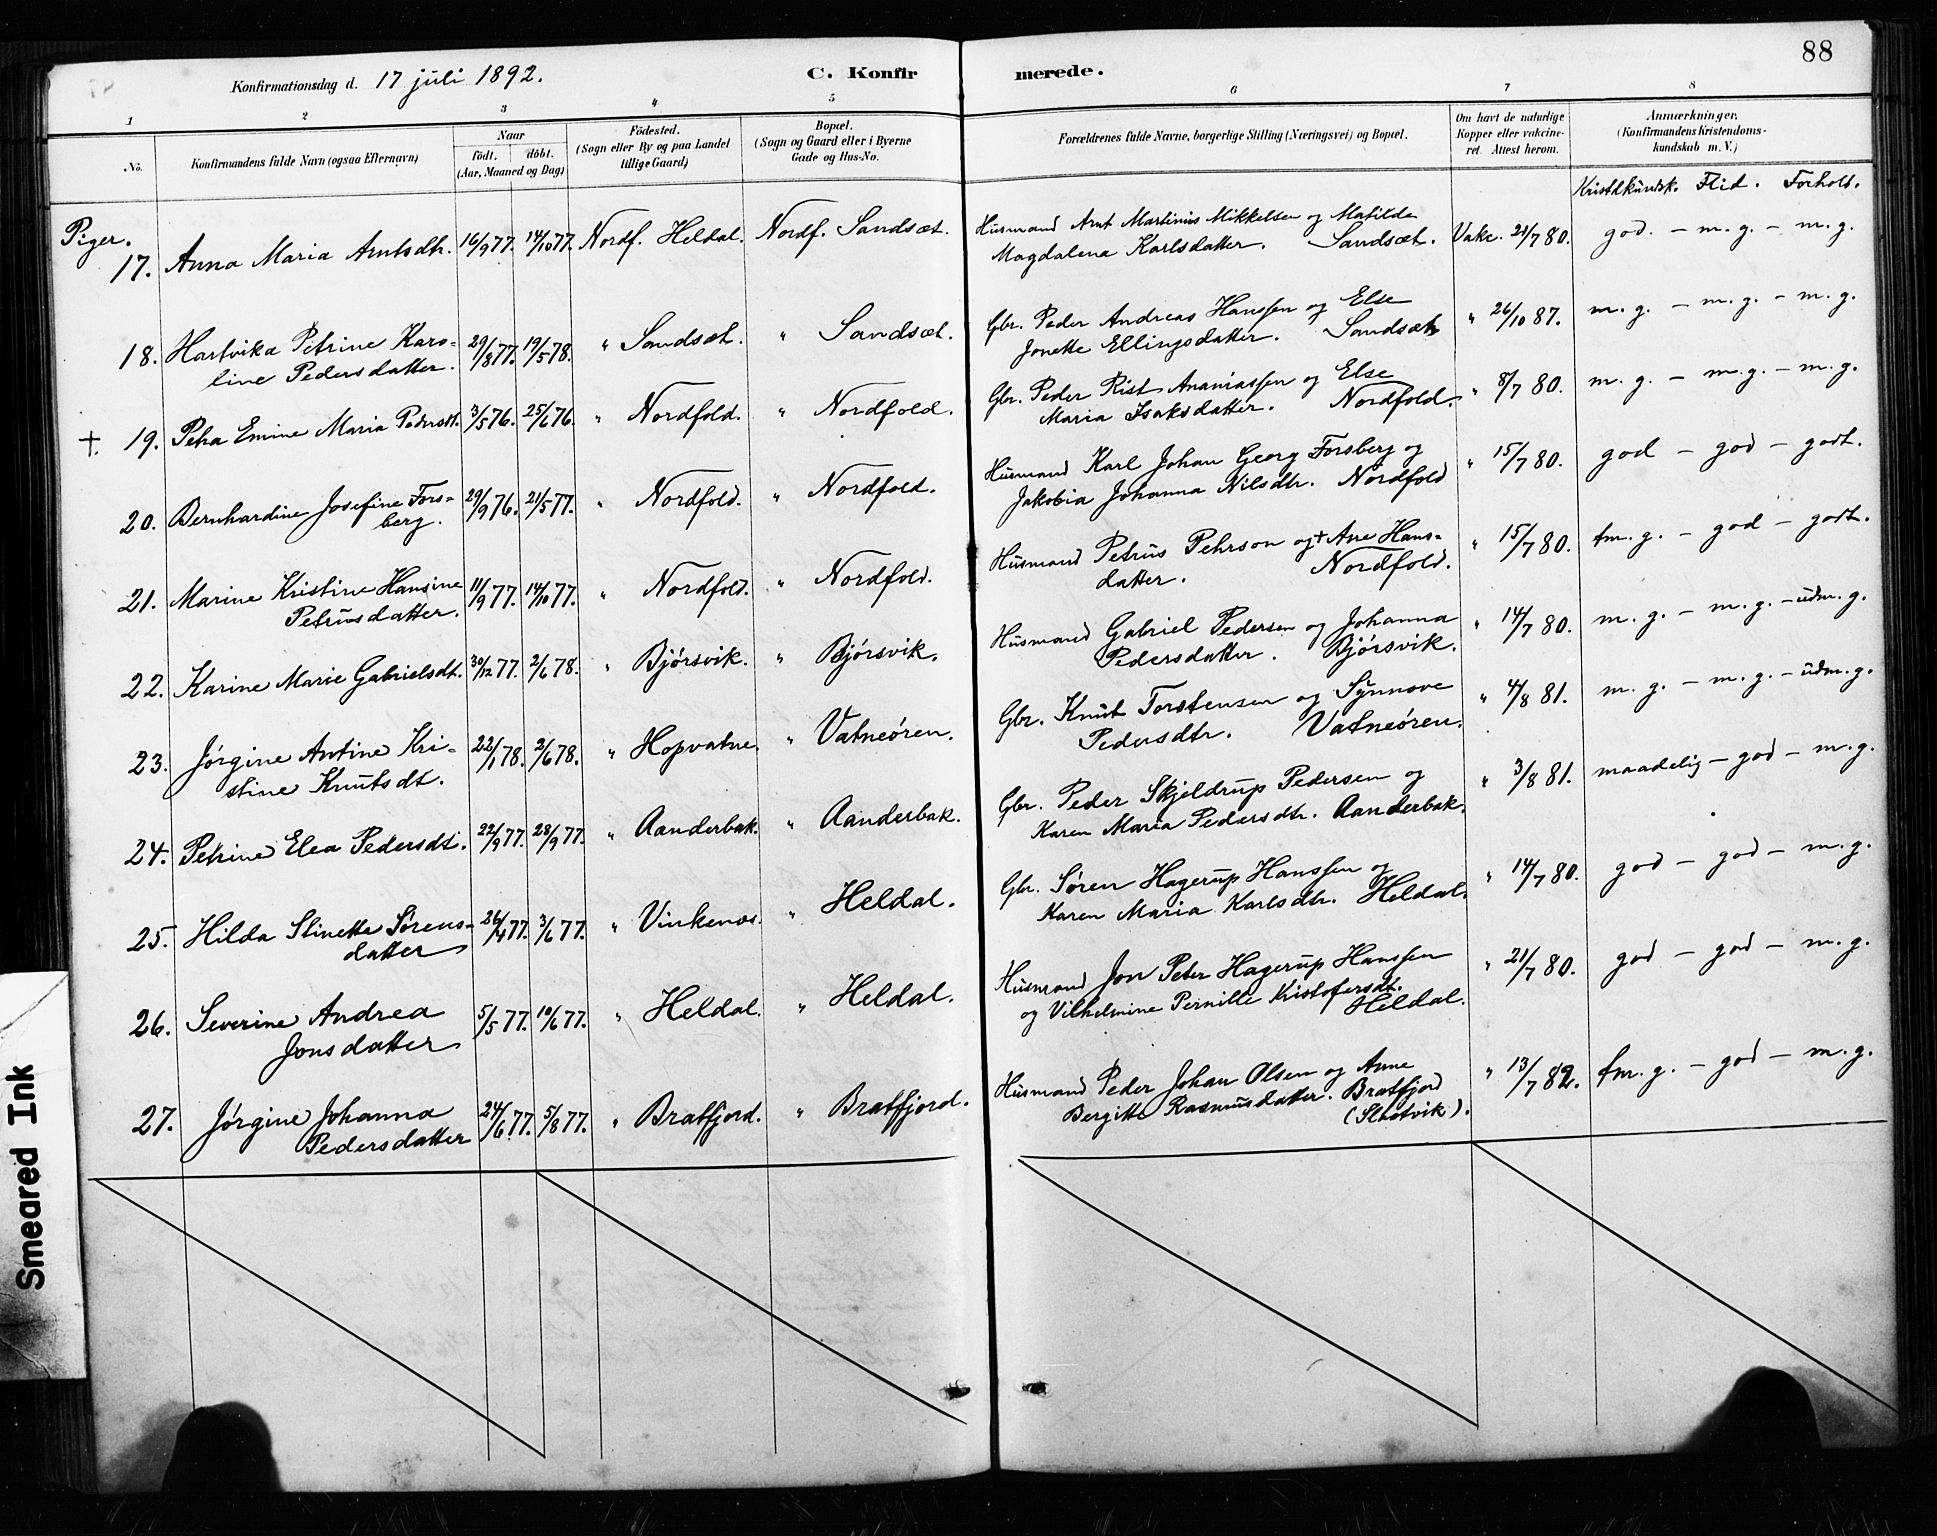 88
Konfirmationsdag d. 17 juli 1892.
C. Konfirmerede.
1 2 3 4 5 6 7 8
No.
Konfirmandens fulde Navn (ogsaa Efternavn)
Naar
født. døbt.
(Aar, Maaned og Dag)
Fødested.
(Sogn eller By og paa Landet
tillige Gaard)
Bopæl.
(Sogn og Gaard eller i Byerne
Gade og Hus-No.
Forældrenes fulde Navne, borgerlige Stilling (Næringsvei) og Bopæl.
Om havt de naturlige
Kopper eller vakcine-
ret. Attest herom.
Anmærkninger.
(Konfirmandens Kristendoms-
kundskab m. V.)
Kristdkundsk. Flid. Forhold.
Piger.
17. Anna Maria Arntsdtr. 16/9 77. 14/10 77. Nordf. Heldal. Nordf. Sandsæt. Husmand Arnt Martinius Mikkelsen og Matilde
Magdalena Karlsdatter. Sandsæt. Vakc. 21/7 80. god. – m. g. – m. g.
18. Hartvika Petrine Karo-
line Pedersdatter. 29/8 77. 19/5 78. " Sandsæt. " Sandsæt. Gbr. Peder Andreas Hanssen og Else
Jonette Ellingsdatter. Sandsæt " 26/10 87. m. g. – m. g. – m. g.
+. 19. Petra Emine Maria Pedersdt. 3/5 76. 25/6 76. " Nordfold. " Nordfold. Gbr. Peder Rist Ananiassen og Else
Maria Isaksdatter. Nordfold. " 8/7 80. m. g. – m. g. – m. g.
20. Bernhardine Josefine Fors-
berg. 29/9 76. 21/5 77. " Nordfold. " Nordfold. Husmand Karl Johan Georg Forsberg og
Jakobia Johanna Nilsdtr. Nordfold " 15/7 80. god – god – godt.
21. Marine Kristine Hansine
Petrusdatter. 11/9 77. 14/10 77. " Nordfold. " Nordfold. Husmand Petrus Pehrson og + Ane Hans-
datter. Nordfold. " 15/7 80. tm. g. – god – godt.
22. Karine Marie Gabrielsdt. 30/12 77. 2/6 78. " Bjørsvik. " Bjørsvik. Husmand Gabriel Pedersen og Johanna
Pedersdatter. Bjørsvik. " 14/7 80. m. g. – m. g. – udm. g.
23. Jørgine Antine Kri-
stine Knutsdt. 22/1 78. 2/6 78. " Hopvatne. " Vatneøren. Gbr. Knut Torstensen og Synnove
Pedersdtr. Vatneøren. " 4/8 81. m. g. – m. g. – udm. g.
24. Petrine Elea Pedersdt. 22/9 77. 28/9 77. " Aanderbak. " Aanderbak. Gbr. Peder Skjeldrup Pedersen og
Karen Maria Pedersdtr. Aanderbak. " 3/8 81. maadelig – god – m. g.
25. Hilda Stinette Sørens-
datter 26/4 77. 3/6 77. " Vinkenes. " Heldal. Gbr. Søren Hagerup Hanssen og
Karen Maria Karlsdtr. Heldal. " 14/7 80. god – god – m. g.
26. Severine Andrea
Jonsdatter 5/5 77. 10/6 77. " Heldal. " Heldal. Husmand Jon Peter Hagerup Hanssen
og Vilhelmine Pernille Kristofersdt.
Heldal. " 21/7 80. god – god – m. g.
27. Jørgine Johanna
Pedersdatter 24/6 77. 5/8 77. " Bratfjord. " Bratfjord. Husmand Peder Johan Olsen og Anne
Bergitte Rasmusdatter. Bratfjord
(Slaatvik). " 13/7 82. tm. g. – god – m. g.
Smeared Ink